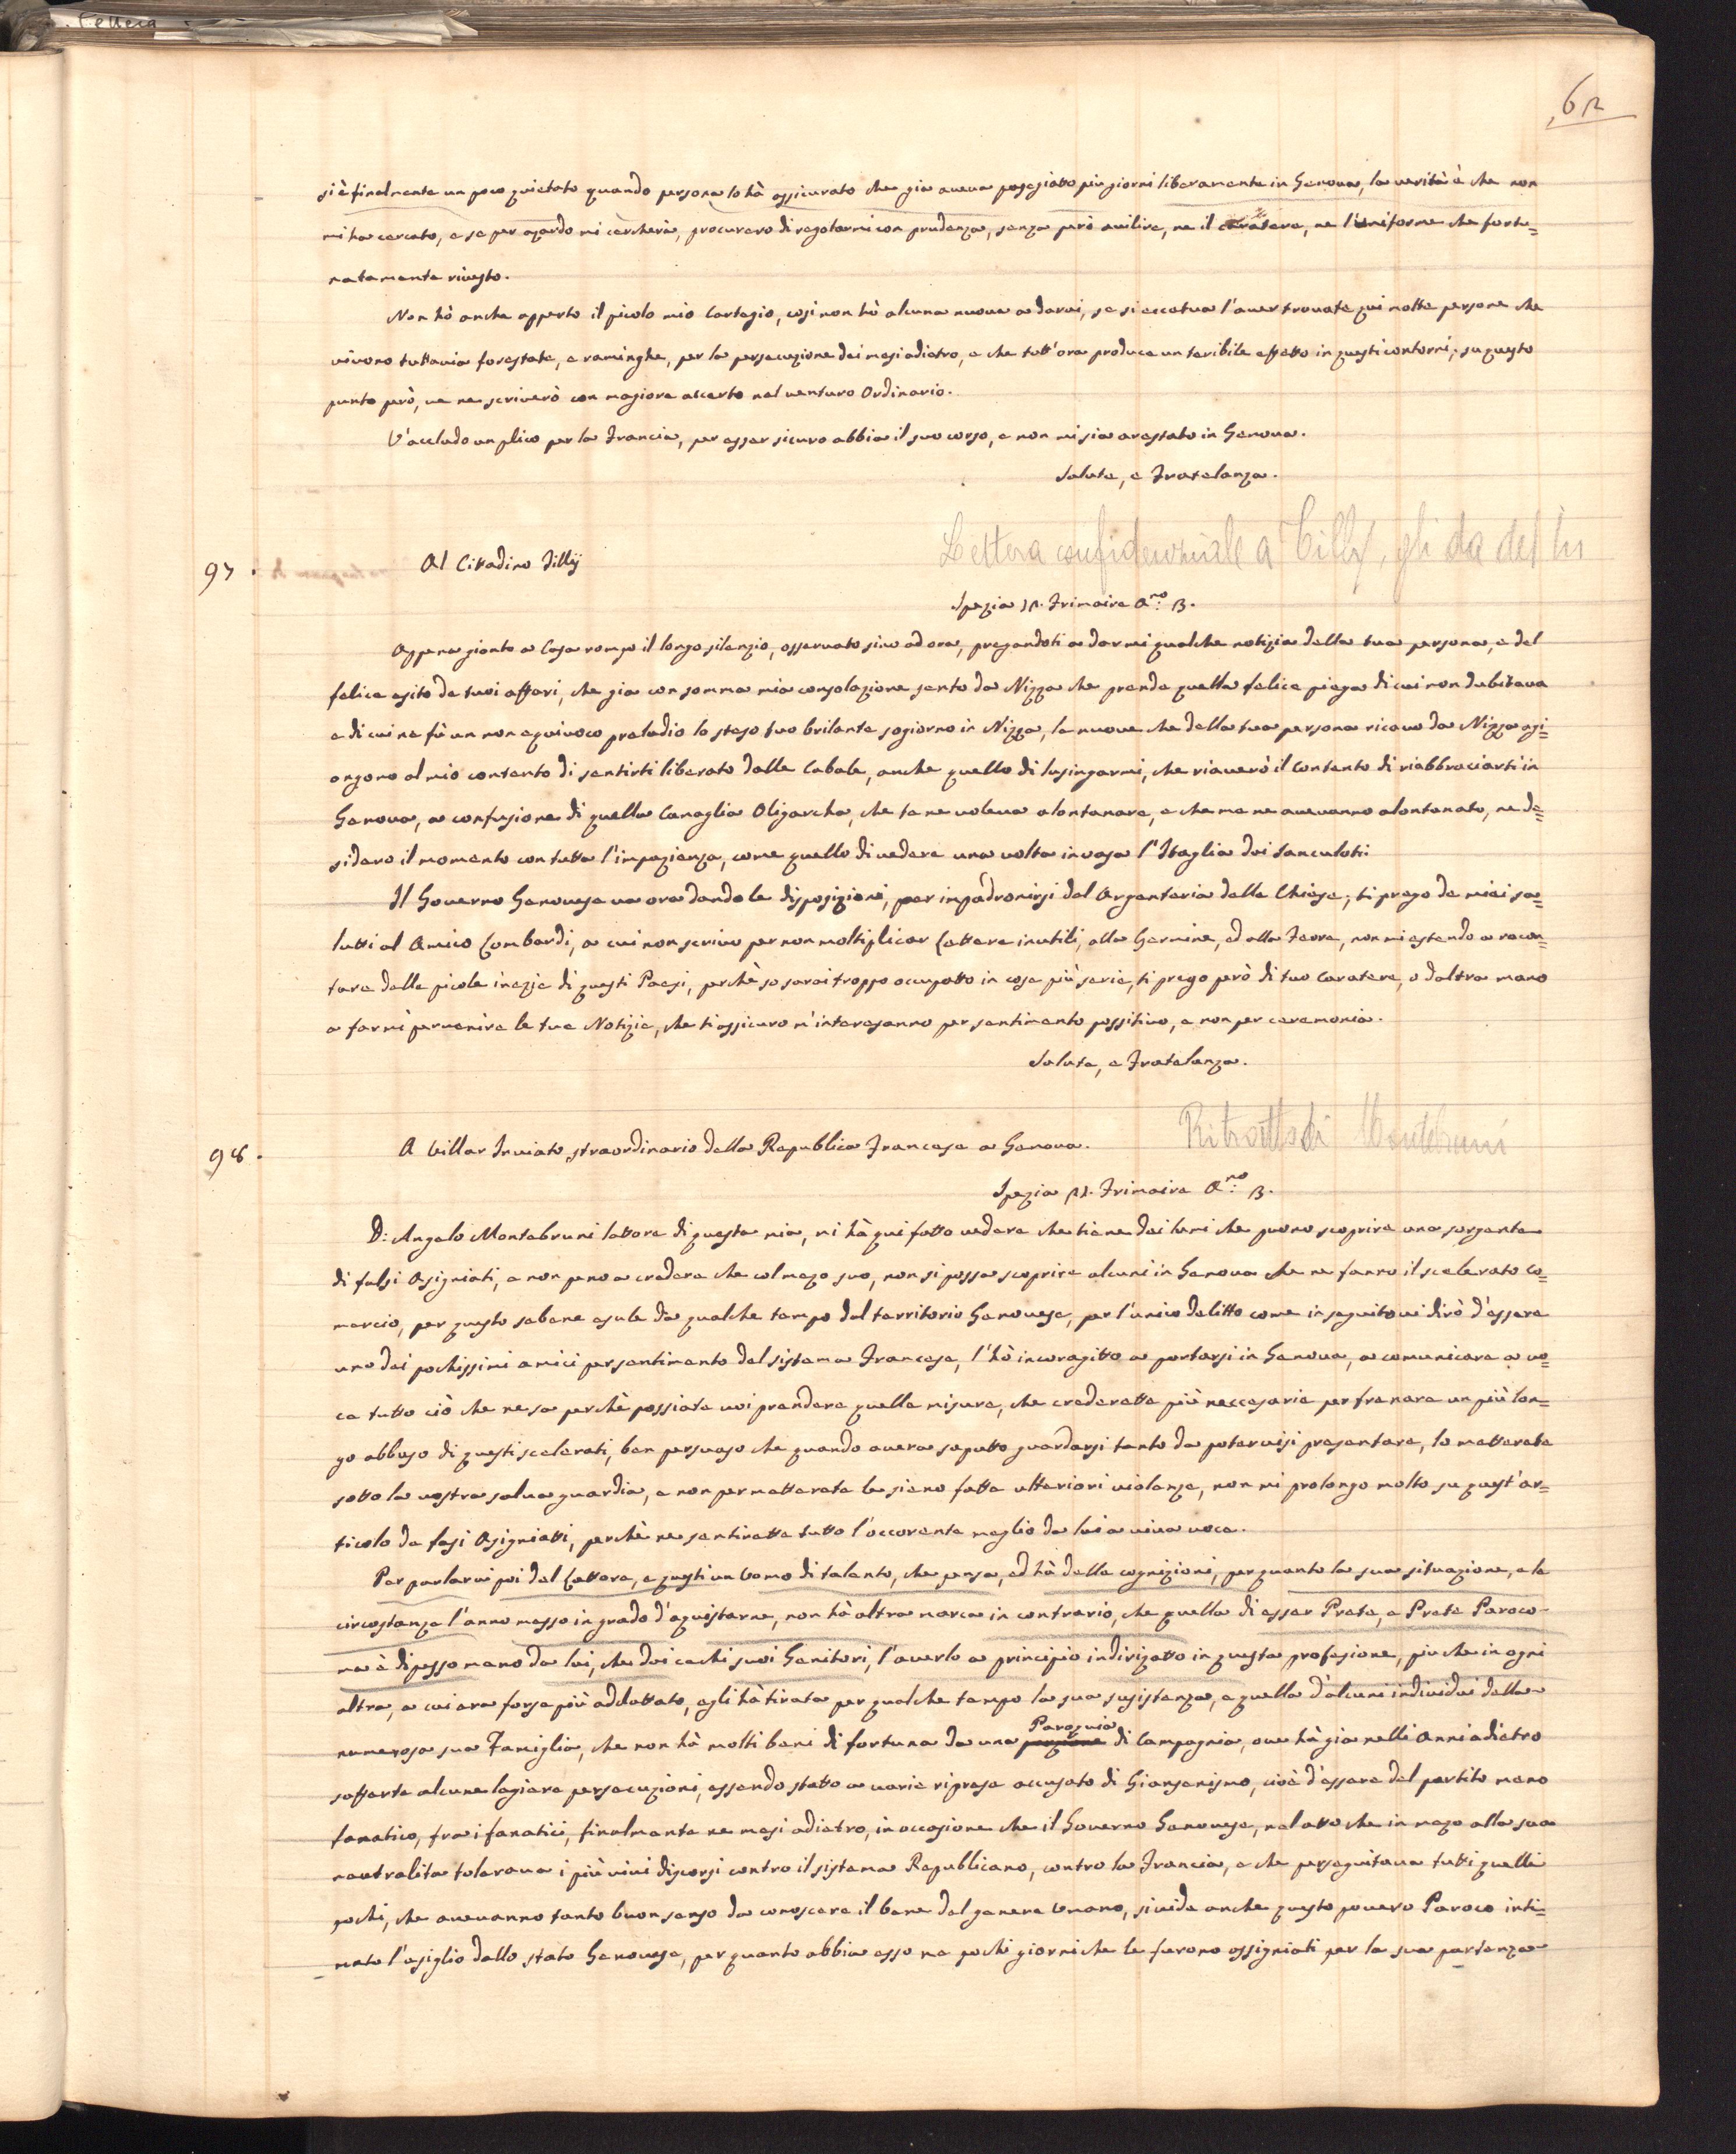 Lettera
62
si è finalmente un poco quietato quando persona lo hà assicurato che gia aveva passegiatto più giorni liberamente in Genova, la verità è che non
mi ha cercato, e se per azardo mi cercherà, procurerò di regolarmi con prudenza, senza però avilire, ne il caratere, ne l'uniforme che fortu=
natamente rivesto.
Non hò anche apperto il picolo mio Cartegio, così non hò alcuna nuova a darvi, se si eccetua l'aver trovate qui molte persone che
vivono tuttavia forestate, e raminghe, per la persecuzione dei mesi adietro, e che tutt'ora produce un teribile effetto in questi contorni; su questo
punto però, ve ne scriverò con magiore accerto nel venturo Ordinario.
V'accludo un plico per la Francia, per esser sicuro abbia il suo corso, e non mi sia arestato in Genova.
Salute, e Fratelanza.
Lettera confidenziale a Tilly, gli da del tu
97.
Al Citadino Tillÿ
Spezia 12. Frimaire Anno: 3.
Appena gionto a Casa rompo il longo silenzio, osservato sino ad ora, pregandoti a darmi qualche notizia della tua persona, e del
felice esito de tuoi affari, che gia con somma mia consolazione sento da Nizza che prende quella felice piega di cui non dubitava
e di cui ne fù un non equivoco preludio lo steso tuo brilante sogiorno in Nizza, le nuove che della tua persona ricavo da Nizza agi=
ongono al mio contento di sentirti liberato dalle Cabale, anche quello di lusingarmi, che riaverò il Contento di riabbraciarti in
Genova, a confusione di quella Canaglia Oligarcha, che te ne voleva alontanare, e che me ne avevanno alontanato, ne de=
sidero il momento con tutta l'impazienza, come quello di vedere una volta invasa l'Itaglia dai Sanculoti:
Il Governo Genovese va ora dando le disposizioni, per impadronirsi del Argenteria delle Chiese; ti prego de miei sa=
lutti al Amico Lombardi, a cui non scrivo per non moltiplicar Lettere inutili, alla Germine, ed alla Feore, non mi estendo a racon=
tare delle picole inezie di questi Paesi, perchè so sarai troppo occupatto in cose più serie, ti prego però di tuo Caratere, o d'altra mano
a farmi pervenire le tue Notizie, che ti assicuro m'interesanno per sentimento possitivo, e non per ceremonia.
Salute, e Fratelanza.
Ritratto di Montebruni
98.
A Villar Inviato straordinario della Republica Francese a Genova.
Spezia 21. Frimaire Anno: 3.
D: Angelo Montebruni latore di questa mia, mi hà qui fatto vedere che tiene dei lumi che puono scoprire una sorgente
di falsi Asigniati, e non peno a credere che col mezo suo, non si possa scoprire alcuni in Genova che ne fanno il scelerato co=
mercio, per questo sebene esule da qualche tempo dal territorio Genovese, per l'unico delitto come in seguito vi dirò d'essere
uno dei pochissimi amici per sentimento del sistema Francese, l'hò incoragitto a portarsi in Genova, a comunicare a vo=
ce tutto ciò che ne sa perchè possiate voi prendere quelle misure, che crederette più neccesarie per frenare un più lon=
go abbuso di questi scelerati, ben persuaso che quando avera saputto guardarsi tanto da potervisi presentare, lo metterete
sotto la vostra salva guardia, e non permetterete le siano fatte ulteriori violenze, non mi prolongo molto su quest'ar=
ticolo de fasi Asigniatti, perchè ne sentirette tutto l'occorente meglio da lui a viva voce.
Per parlarvi poi del Lattore, e questi un Uomo di talento, che pensa, ed hà delle cognizioni, per quanto la sua situazione, e le
circostanze l'anno messo in grado d'aquistarne, non hà altra marca in contrario, che quella di esser Prete, e Prete Paroco
ma è dipesso meno da lui, che dai cechi suoi Genitori, l'averlo a principio indirizatto in questa profesione, piu che in ogni
altra, a cui era forse più addattato, egli hà tirata per qualche tempo la sua susistenza, e quella d'alcuni individui della
numerosa sua Famiglia, che non hà molti beni di fortuna da una Paroquia di Campagnia, ove hà gia nelli Anni adietro
sofferte alcune legiere persecuzioni, essendo statto a varie riprese accusato di Giansenismo, cioè d'essere del partito meno
fanatico, fra i fanatici, finalmente ne mesi adietro, in occasione che il Governo Genovese, nel atto che in mezo alla sua
neutralita tolerava i più vivi discorsi contro il sistema Republicano, contro la Francia, e che perseguitava tutti quelli
pochi, che avevanno tanto buon senso da conoscere il bene del genere Umano, si vide anche questo povero Paroco inti=
mato l'esiglio dallo stato Genovese, per quanto abbia esso ne pochi giorni che le furono assigniati per la sua partenza